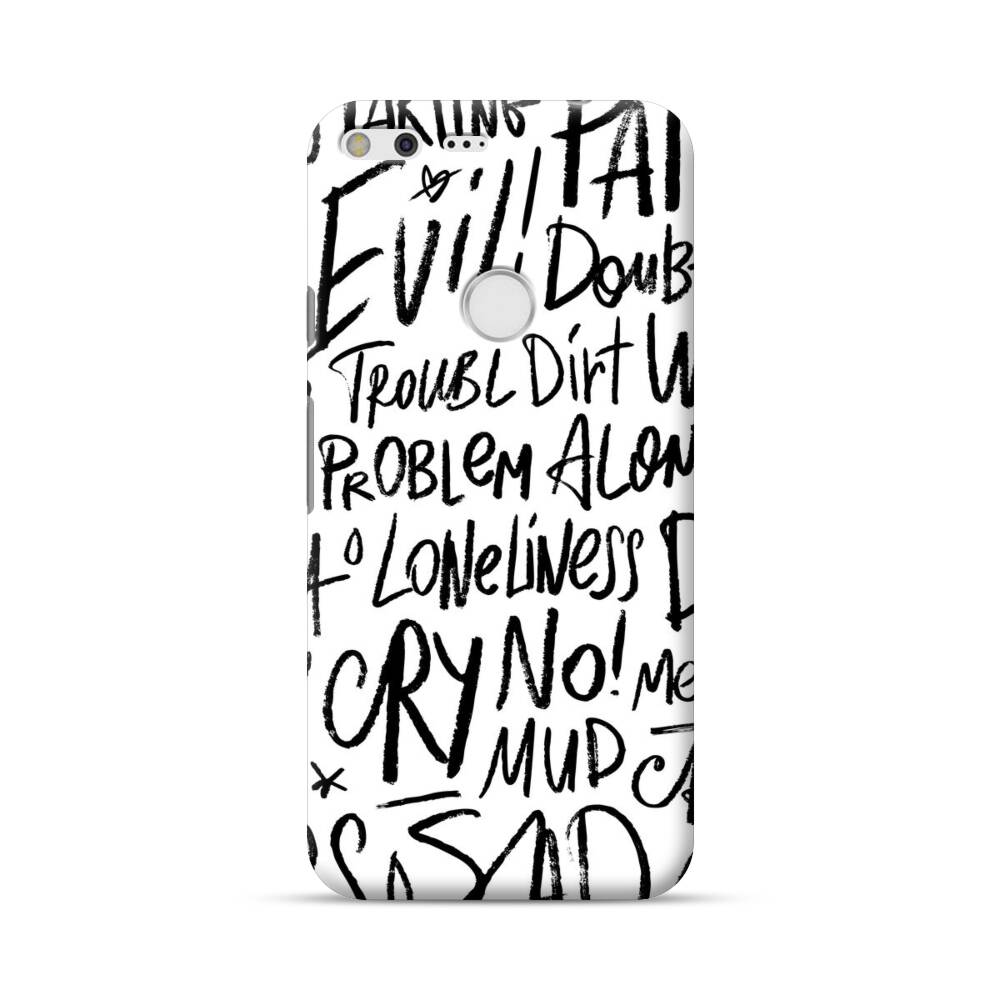 EViL!
DouB
TROUBL Dirt W
PROBLeM ALON
LONeLiNess D
CRY NO! Me
MUD
SAD